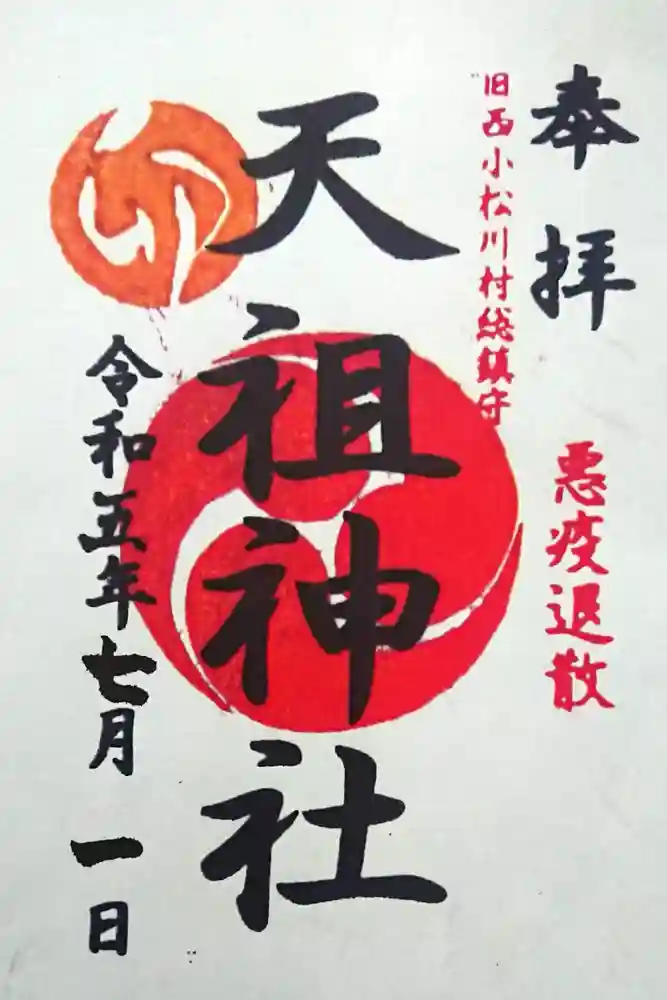 奉拝
悪疫退散
旧西小松川村総鎮守
天祖神社
令和五年七月一日